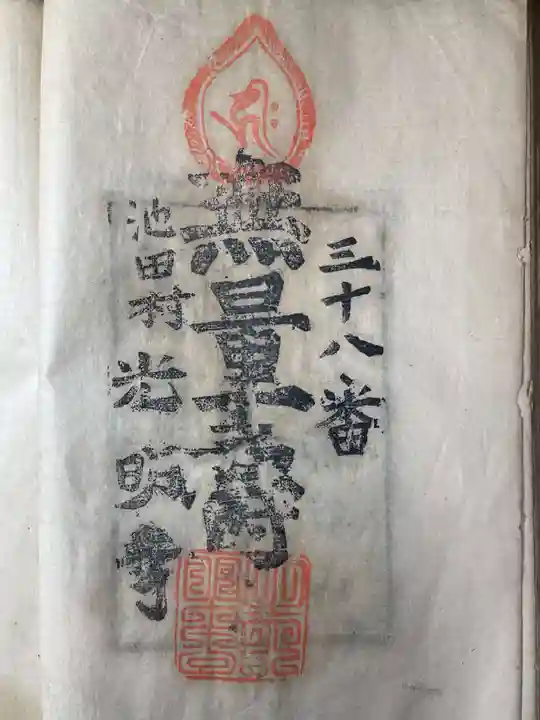 三十八番
無量寿
池田村 光明寺